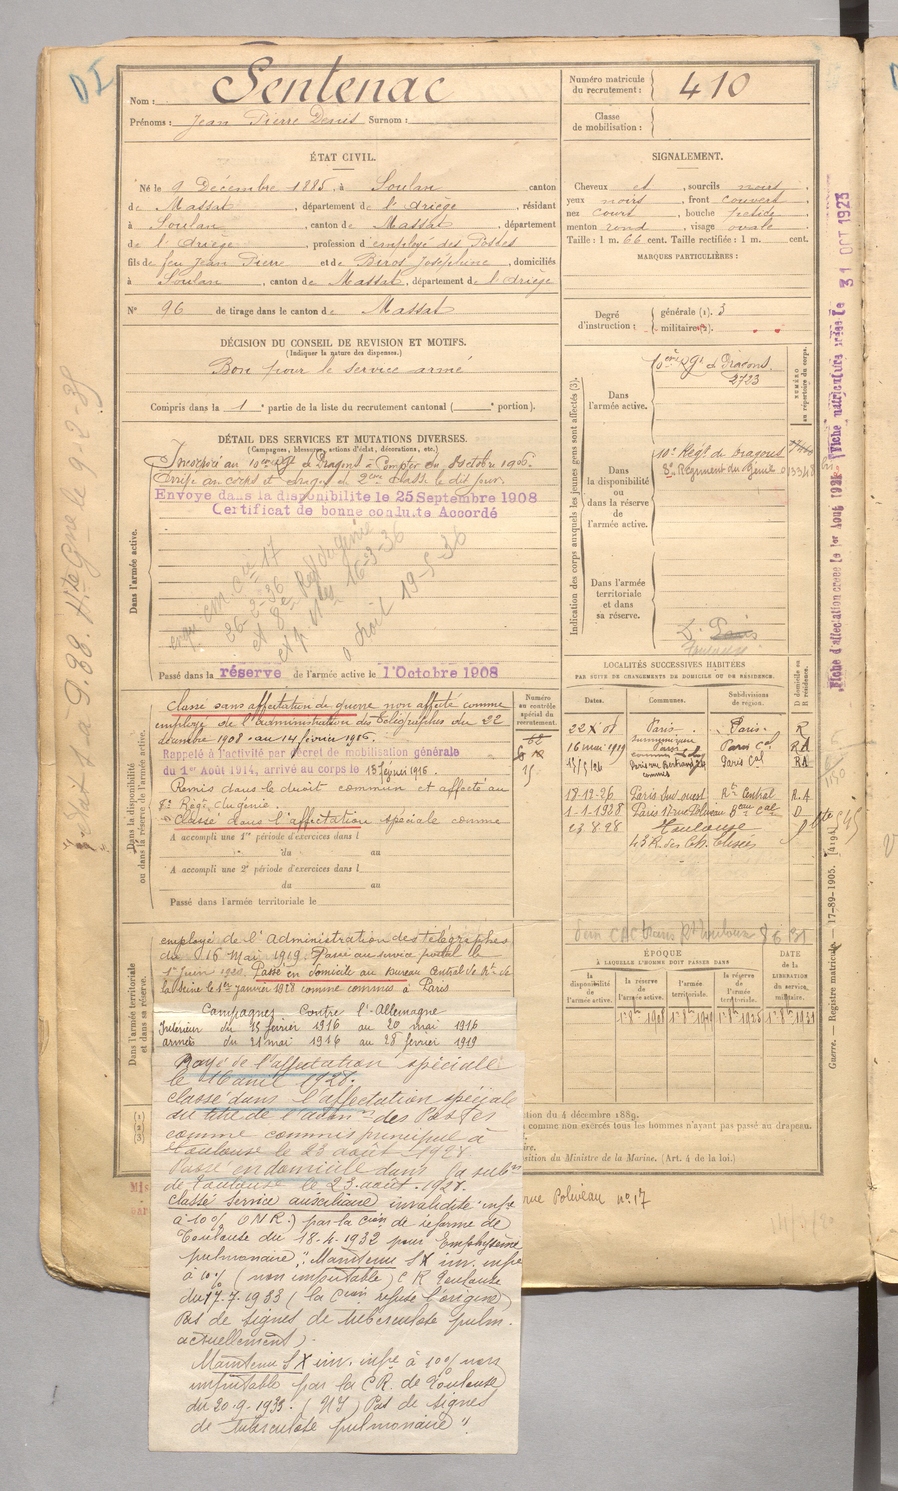 DI
Nom : Sentenac
Prénoms : Jean Pierre Denis Surnom :
ÉTAT CIVIL.
Né le 9 Décembre 1885, à Soulan canton
de Massat, département de l'Ariège, résidant
à Soulan, canton de Massat, département
de l'Ariège, profession d'employé des Postes
fils de feu Jean Pierre et de Biros Joséphine, domiciliés
à Soulan, canton de Massat, département de l'Ariège
N° 96 de tirage dans le canton de Massat
DÉCISION DU CONSEIL DE REVISION ET MOTIFS.
(Indiquer la nature des dispenses.)
Bon pour le service armé
Compris dans la 1e partie de la liste du recrutement cantonal ( e portion).
DÉTAIL DES SERVICES ET MUTATIONS DIVERSES.
(Campagnes, blessures, actions d'éclat, décorations, etc.)
Incorporé au 10ème Rgt de Dragons à Compter du 8 octobre 1906.
Arrivé au corps et dragon de 2ème classe le dit jour.
Envoyé dans la disponibilite le 25 Septembre 1908
Certificat de bonne conduite Accordé
Dans l'armée active.
cie 17
26-2-36
et 8e Regt du génie
16-3-36
19-5-36
Passé dans la réserve de l'armée active le 1 Octobre 1908
Dans la disponibilité
ou dans la réserve de l'armée active.
Classé sans affectation de guerre non affecté comme
employé de l'administration des télégraphes du 22
décembre 1908 au 14 février 1916.
Rappelé à l'activité par décret de mobilisation générale
du 1er Août 1914, arrivé au corps le 15 février 1916.
Remis dans le droit commun et affecté au
8e Régt du génie.
Classé dans l'affectation spéciale comme
A accompli une 1re période d'exercices dans l
du au
A accompli une 2e période d'exercices dans l
du au
Passé dans l'armée territoriale le
Numéro
au contrôle
spécial du
recrutement.
Dans l'armée territoriale
et dans sa réserve.
employé de l'Administration des télégraphes
du 16 Mai 1919. Passé au service postal le
1er juin 1920. Passé en domicile au bureau Central de Rt de
la Seine le 1er janvier 1928 comme commis à Paris
Campagnes Contre l'Allemagne
Intérieur du 15 février 1916 au 20 mai 1916
armées du 21 mai 1916 au 28 février 1919
Rayé de l'affectation spéciale
le 16 avril 1928.
Classé dans l'affectation spéciale
au titre de l'admon des Postes
comme commis principal à
Toulouse le 23 août 1928
Passé en domicile dans la subon
de Toulouse le 23 août 1928.
Classé service auxiliaire invalidité infre
à 10% O.N.R.) par la Cion de réforme de
Toulouse du 18.4.1932 pour "Emphysème
pulmonaire". Maintenu SX inv. infre
à 10% (non imputable) C R Toulouse
du 17.7.1933 (la Cion refuse l'origine)
Pas de signes de tuberculose pulm.
actuellement).
Maintenu SX inv. infre à 10% non
imputable par la C.R. de Toulouse
du 20.9.1933. (NI) Pas de signes
de tuberculose pulmonaire".
Numéro matricule
du recrutement : 410
Classe
de mobilisation :
SIGNALEMENT.
Cheveux et, sourcils noirs,
yeux noirs, front couvert
nez court, bouche petite
menton rond, visage ovale
Taille : 1 m. 66 cent. Taille rectifiée : 1 m. cent.
MARQUES PARTICULIÈRES :
Degré
d'instruction :
générale (1). 3
militaire (2).
Indication des corps auxquels les jeunes gens sont affectés (3).
Dans
l'armée active.
10ème Rgt de Dragons
2723
NUMÉRO
au répertoire du corps.
Dans
la disponibilité
ou
dans la réserve
de
l'armée active.
10e Régt de Dragons
8e Régiment du Génie 013348
Dans l'armée
territoriale
et dans
sa réserve.
Paris
Toulouse
LOCALITÉS SUCCESSIVES HABITÉES
PAR SUITE DE CHANGEMENTS DE DOMICILE OU DE RÉSIDENCE.
Dates. Communes. Subdivisions
de région. D domicile ou
R résidence.
22 X 08 Paris Paris R
16 mai 1919 Paris Paris Cal RA
Paris Cal RA
18-12-26 Paris Sud ouest Rt Central R.A
1-1-1928 Paris 17 rue Poliveau Beau Cal D
23 8 28 Toulouse
43 R. des Ch. Elisées
ÉPOQUE
À LAQUELLE L'HOMME DOIT PASSER DANS
DATE
de la
LIBÉRATION
du service
militaire.
la
disponibilité
de
l'armée active.
la réserve
de
l'armée active.
l'armée
territoriale.
la réserve
de
l'armée
territoriale.
ition du 4 décembre 1889.
comme non exercés tous les hommes n'ayant pas passé au drapeau.
ire.
sition du Ministre de la Marine. (Art. 4 de la loi.)
rue Poliveau n° 17
Fiche d'affectation créée le 1er Août 1921
Fiche matriculaire créée le 31 OCT 1923
Guerre. — Registre matricule. — 17-89-1905. [4194]